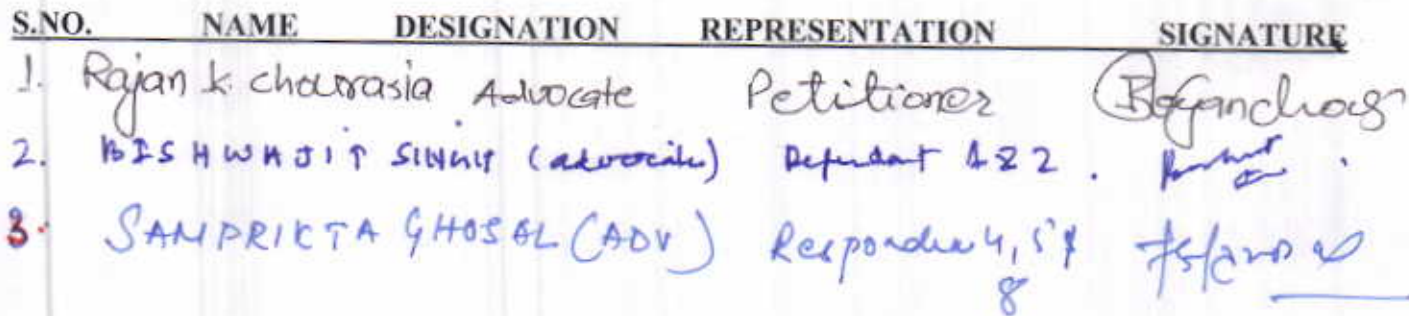 S.NO. NAME DESIGNATION REPRESENTATION SIGNATURE
1. Rajan k. chourasia Advocate Petitioner
2. BISHWAJIT SINGH (advocate) Defendant 1 & 2.
3. SAMPRIKTA GHOSAL (ADV) Responden 4, 5 &
8